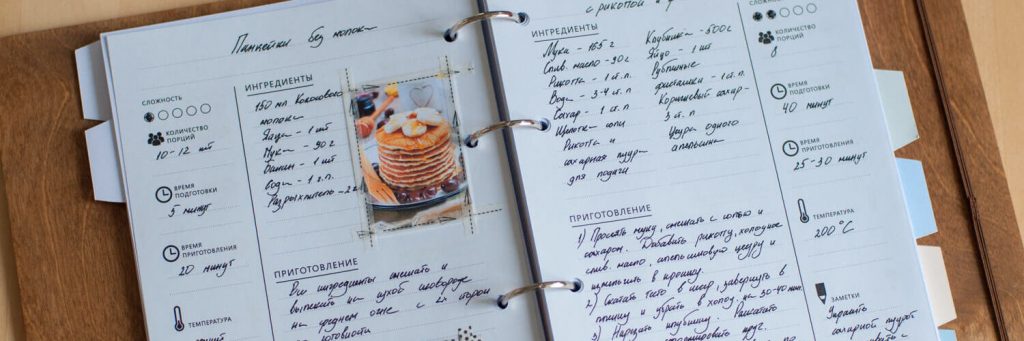 Панкейки без молока
СЛОЖНОСТЬ
КОЛИЧЕСТВО
ПОРЦИЙ
10-12 шт
ВРЕМЯ
ПОДГОТОВКИ
5 минут
ВРЕМЯ
ПРИГОТОВЛЕНИЯ
20 минут
ТЕМПЕРАТУРА
ИНГРЕДИЕНТЫ
150 мл Кокосового
молока
Яйца - 1 шт
Мука - 90 г
Банан - 1 шт
Разрыхлитель - 2
ПРИГОТОВЛЕНИЕ
Все ингредиенты смешать и
выпекать на сухой сковороде
на среднем огне с 2х сторон
готовности
с рикоттой и
ИНГРЕДИЕНТЫ
Мука - 165 г
Слив. масло - 90 г
Рикотта - 1 ст. л.
Вода - 3-4 ст. л
Сахар - 1 ст. л.
Щепотка соли
Рикотта и
сахарная пудра
для подачи
Клубника - 500 г
Яйцо - 1 шт
Рубленые
- 1 ст. л.
Коричневый сахар -
3 ст. л
Цедра одного
апельсина
ПРИГОТОВЛЕНИЕ
1) Просеять муку, смешать с солью и
сахаром. Добавить рикотту, холодное
слив. масло, апельсиновую цедру и
измельчить в крошку.
2) Скатать тесто в шар, завернуть в
пленку и убрать в холод. на 30-40 мин.
3) Нарезать клубнику. Раскатать
круг.
КОЛИЧЕСТВО
ПОРЦИЙ
8
ВРЕМЯ
ПОДГОТОВКИ
40 минут
ВРЕМЯ
ПРИГОТОВЛЕНИЯ
25-30 минут
ТЕМПЕРАТУРА
200°C
ЗАМЕТКИ
Украсить
сахарной пудрой